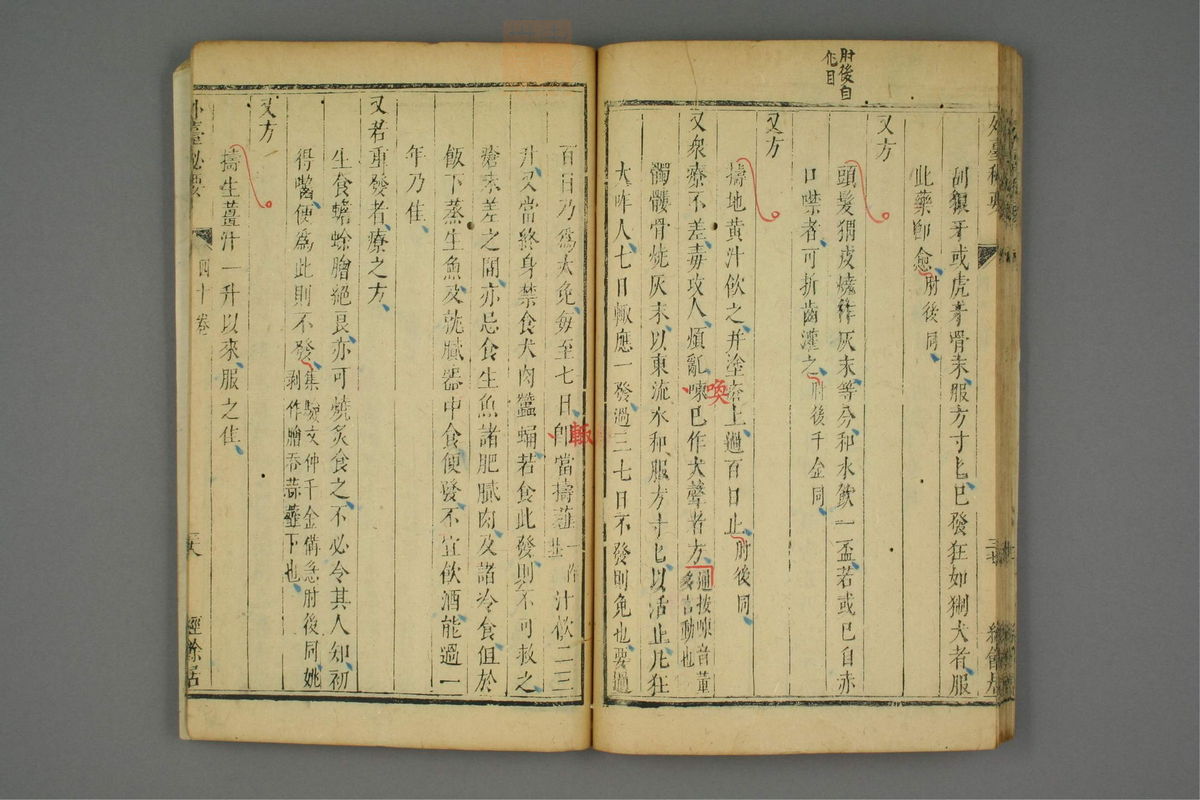 肘後自
作目
外臺秘要
刮狼牙或虎牙骨末服方寸匕已發狂如猘犬者服
此藥即愈肘後同
又方
頭髮猬皮燒作灰末等分和水飲一盃若或已自赤
口噤者可折齒灌之肘後千金同
又方
擣地黃汁飲之并塗瘡上過百日止肘後同
又眾療不差毒攻人煩亂㖦已作犬聲者方
通按㖦音董
多言動也
喚
髑髏骨燒灰末以東流水和服方寸匕以活止凡狂
犬咋人七日輒應一發過三七日不發則免也要過
百日乃為大免每至七日即當擣薤
一作
韮
汁飲二三
輒
升又當終身禁食犬肉蠶蛹若食此發則不可救之
瘡未差之間亦忌食生魚諸肥膩肉及諸冷食但於
飯下蒸生魚及就膩器中食便發不宜飲酒能過一
年乃佳
又若重發者療之方
生食蟾蜍膾絕良亦可燒炙食之不必令其人知初
得嚙便為此則不發
集驗文仲千金備急肘後同姚
剥作膾吞蒜虀下也
又方
擣生薑汁一升以來服之佳
外臺秘要
四十卷
經餘居